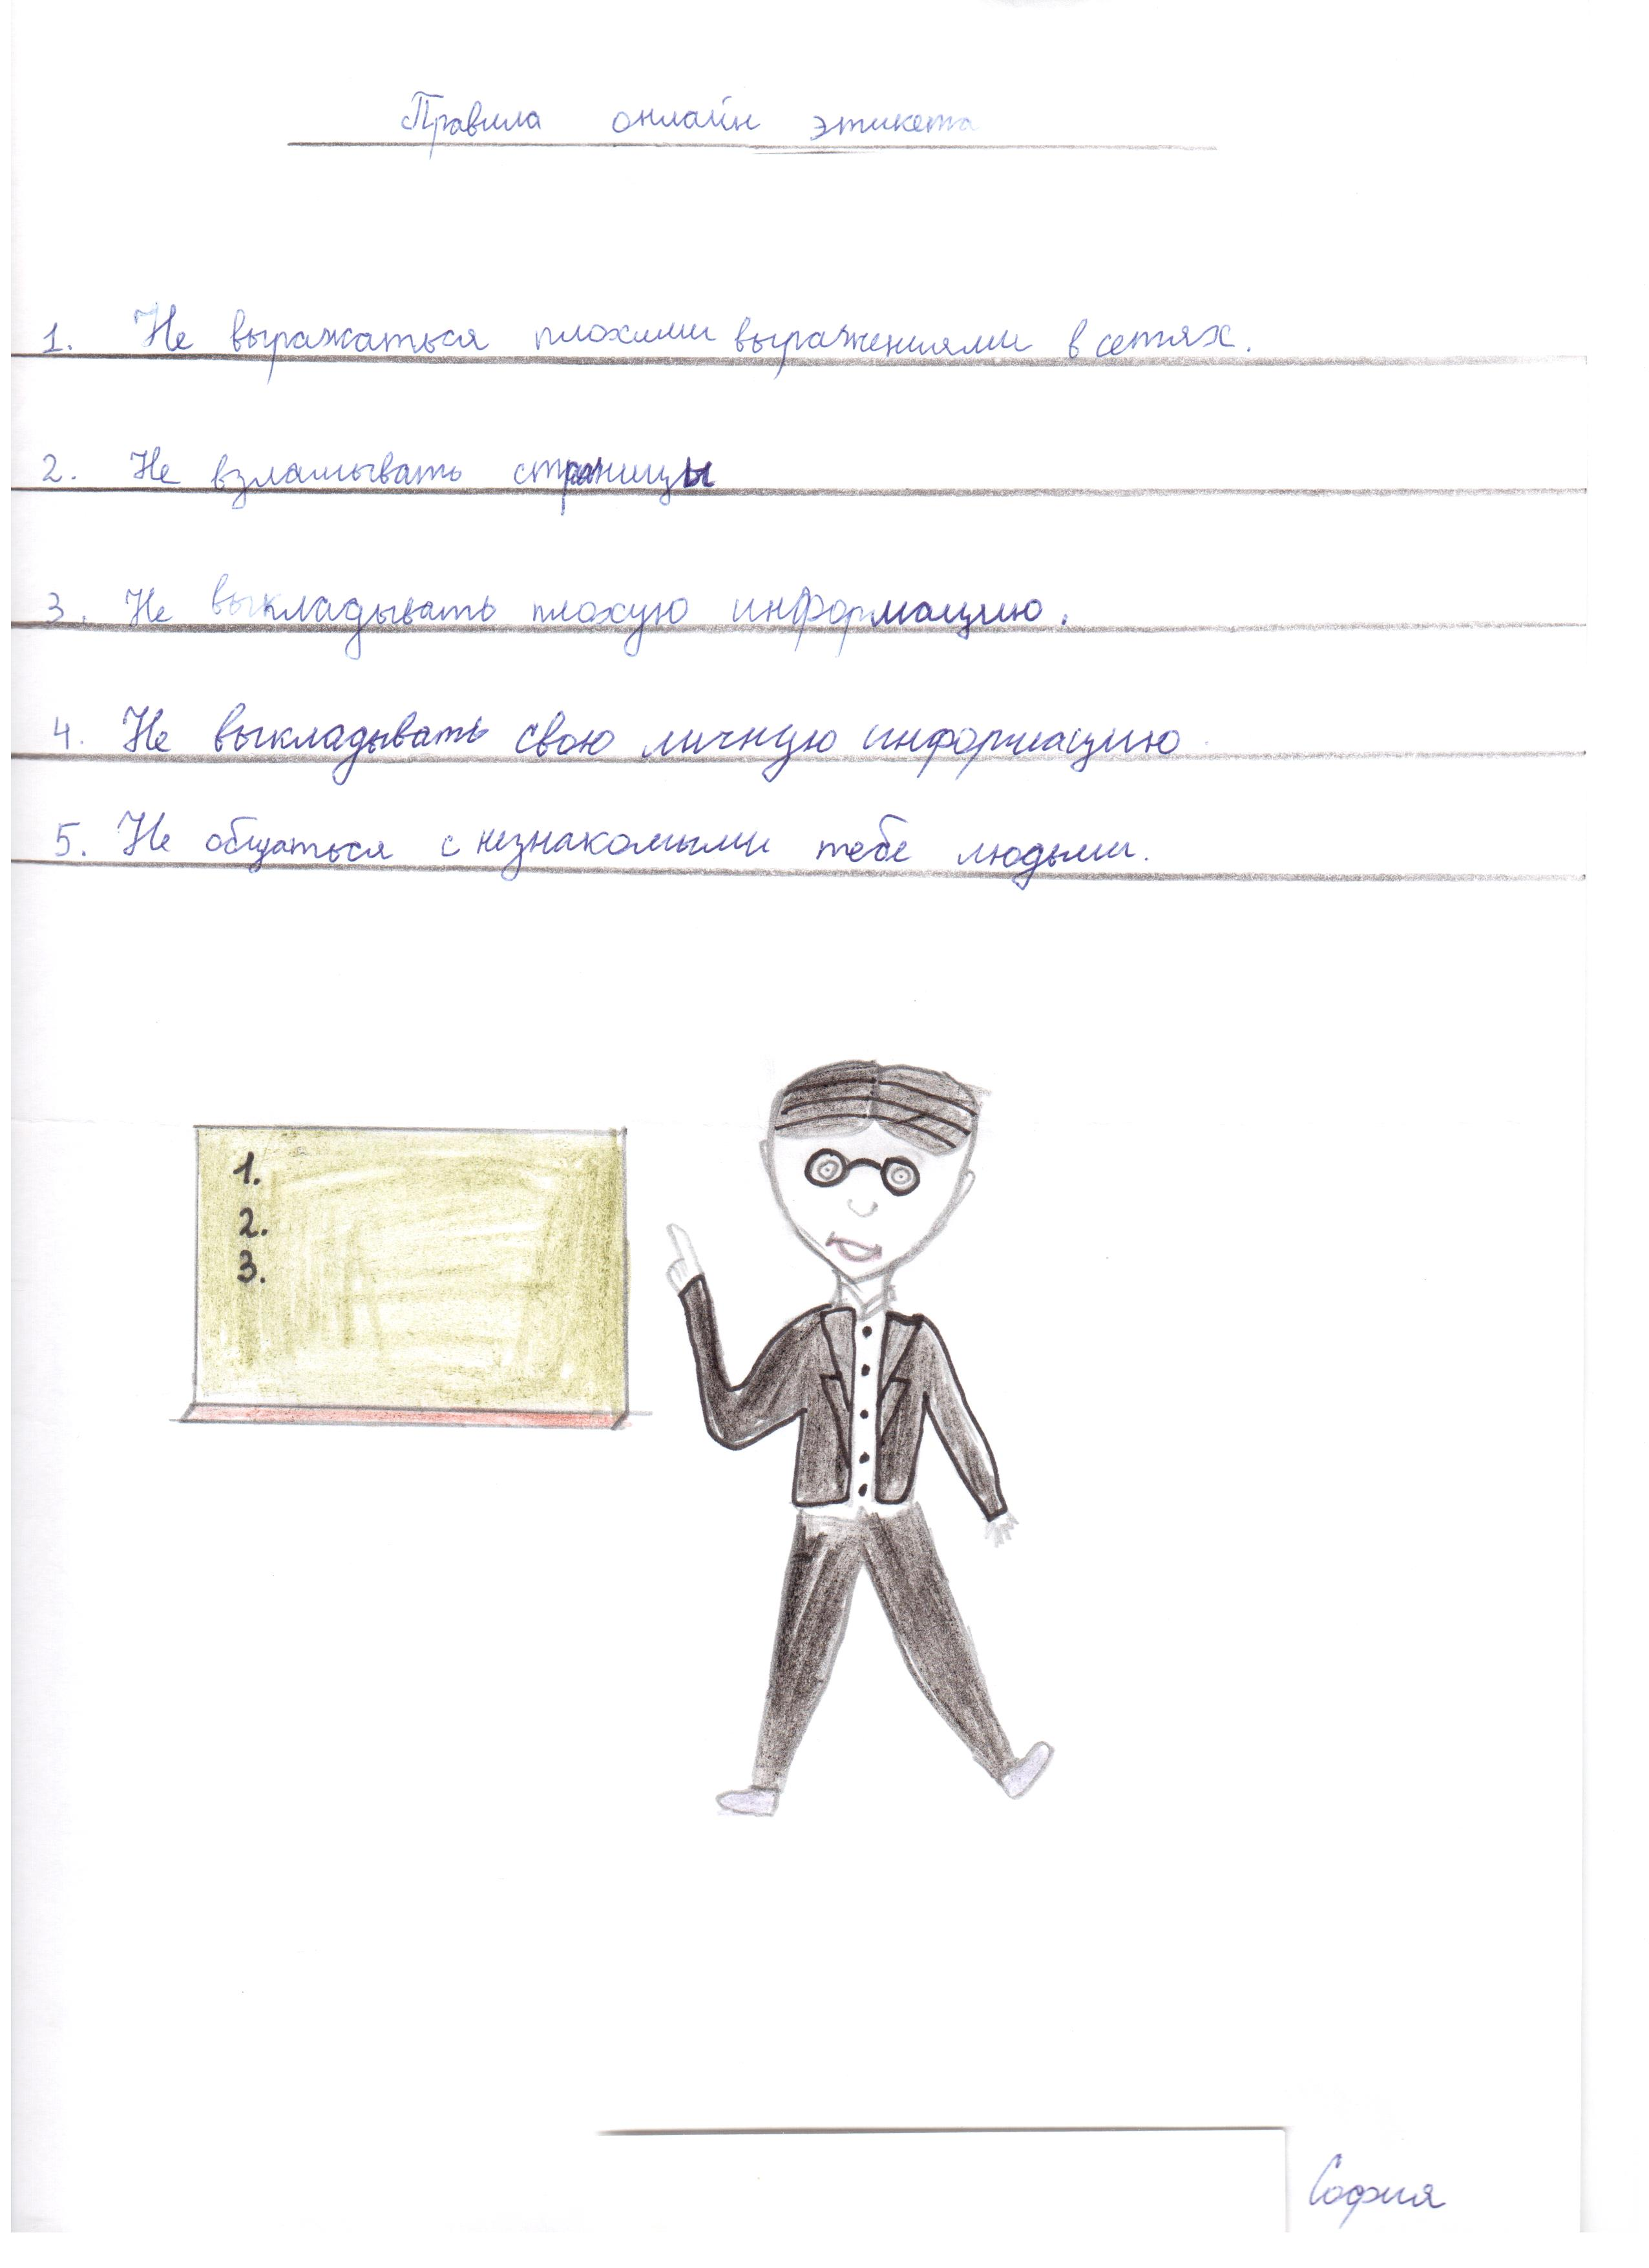 Правила онлайн этикета
1. Не выражаться плохими выражениями в сетях.
2. Не взламывать страницы
3. Не выкладывать плохую информацию.
4. Не выкладывать свою личную информацию.
5. Не общаться с незнакомыми тебе людьми.
1.
2.
3.
София